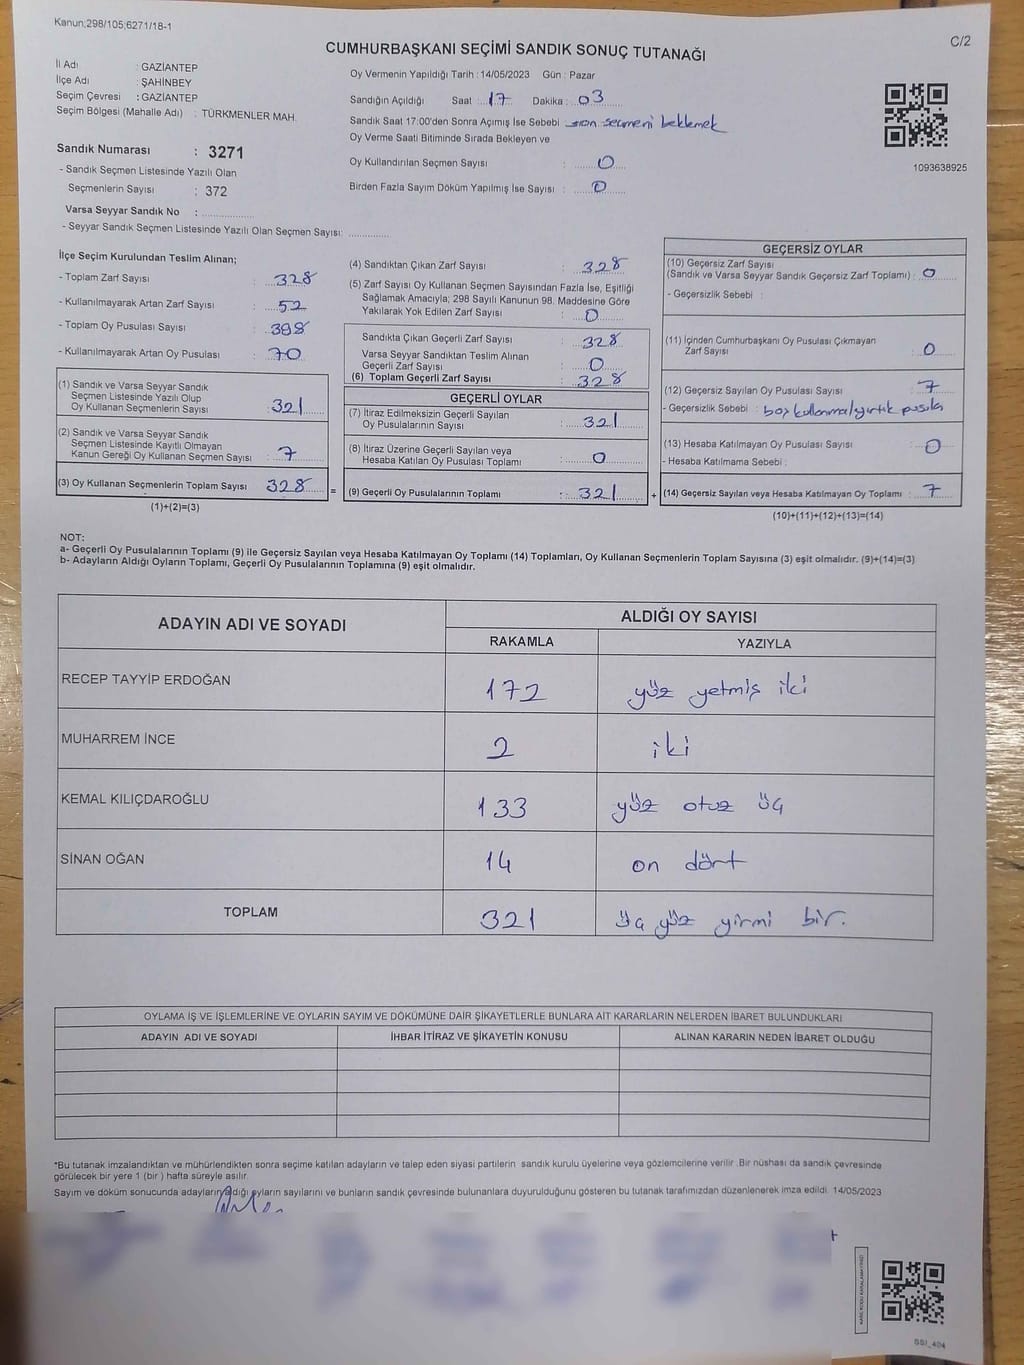 Kanun;298/105;6271/18-1
C/2
CUMHURBAŞKANI SEÇİMİ SANDIK SONUÇ TUTANAĞI
İl Adı : GAZİANTEP
İlçe Adı : ŞAHİNBEY
Seçim Çevresi : GAZİANTEP
Seçim Bölgesi (Mahalle Adı) : TÜRKMENLER MAH.
Sandık Numarası : 3271
- Sandık Seçmen Listesinde Yazılı Olan
Seçmenlerin Sayısı : 372
Varsa Seyyar Sandık No :
- Seyyar Sandık Seçmen Listesinde Yazılı Olan Seçmen Sayısı:
Oy Vermenin Yapıldığı Tarih : 14/05/2023 Gün : Pazar
Sandığın Açıldığı Saat : 17 Dakika : 03
Sandık Saat 17:00'den Sonra Açımış İse Sebebi son seçmeni beklemek
Oy Verme Saati Bitiminde Sırada Bekleyen ve
Oy Kullandırılan Seçmen Sayısı : 0
Birden Fazla Sayım Döküm Yapılmış İse Sayısı : 0
1093638925
İlçe Seçim Kurulundan Teslim Alınan;
- Toplam Zarf Sayısı : 328
- Kullanılmayarak Artan Zarf Sayısı : 52
- Toplam Oy Pusulası Sayısı : 398
- Kullanılmayarak Artan Oy Pusulası : 70
(1) Sandık ve Varsa Seyyar Sandık
Seçmen Listesinde Yazılı Olup
Oy Kullanan Seçmenlerin Sayısı : 321
(2) Sandık ve Varsa Seyyar Sandık
Seçmen Listesinde Kayıtlı Olmayan
Kanun Gereği Oy Kullanan Seçmen Sayısı : 7
(3) Oy Kullanan Seçmenlerin Toplam Sayısı 328 =
(1)+(2)=(3)
(4) Sandıktan Çıkan Zarf Sayısı : 328
(5) Zarf Sayısı Oy Kullanan Seçmen Sayısından Fazla İse, Eşitliği
Sağlamak Amacıyla; 298 Sayılı Kanunun 98. Maddesine Göre
Yakılarak Yok Edilen Zarf Sayısı : 0
Sandıkta Çıkan Geçerli Zarf Sayısı : 328
Varsa Seyyar Sandıktan Teslim Alınan
Geçerli Zarf Sayısı : 0
(6) Toplam Geçerli Zarf Sayısı : 328
GEÇERLİ OYLAR
(7) İtiraz Edilmeksizin Geçerli Sayılan
Oy Pusulalarının Sayısı : 321
(8) İtiraz Üzerine Geçerli Sayılan veya
Hesaba Katılan Oy Pusulası Toplamı : 0
(9) Geçerli Oy Pusulalarının Toplamı : 321 +
GEÇERSİZ OYLAR
(10) Geçersiz Zarf Sayısı
(Sandık ve Varsa Seyyar Sandık Geçersiz Zarf Toplamı) : 0
- Geçersizlik Sebebi :
(11) İçinden Cumhurbaşkanı Oy Pusulası Çıkmayan
Zarf Sayısı : 0
(12) Geçersiz Sayılan Oy Pusulası Sayısı : 7
- Geçersizlik Sebebi : boş kullanma/yırtık pusula
(13) Hesaba Katılmayan Oy Pusulası Sayısı : 0
- Hesaba Katılmama Sebebi :
(14) Geçersiz Sayılan veya Hesaba Katılmayan Oy Toplamı : 7
(10)+(11)+(12)+(13)=(14)
NOT:
a- Geçerli Oy Pusulalarının Toplamı (9) ile Geçersiz Sayılan veya Hesaba Katılmayan Oy Toplamı (14) Toplamları, Oy Kullanan Seçmenlerin Toplam Sayısına (3) eşit olmalıdır. (9)+(14)=(3)
b- Adayların Aldığı Oyların Toplamı, Geçerli Oy Pusulalarının Toplamına (9) eşit olmalıdır.
ADAYIN ADI VE SOYADI
ALDIĞI OY SAYISI
RAKAMLA YAZIYLA
RECEP TAYYİP ERDOĞAN 172 yüz yetmiş iki
MUHARREM İNCE 2 iki
KEMAL KILIÇDAROĞLU 133 yüz otuz üç
SİNAN OĞAN 14 on dört
TOPLAM 321 üç yüz yirmi bir.
OYLAMA İŞ VE İŞLEMLERİNE VE OYLARIN SAYIM VE DÖKÜMÜNE DAİR ŞİKAYETLERLE BUNLARA AİT KARARLARIN NELERDEN İBARET BULUNDUKLARI
ADAYIN ADI VE SOYADI İHBAR İTİRAZ VE ŞİKAYETİN KONUSU ALINAN KARARIN NEDEN İBARET OLDUĞU
*Bu tutanak imzalandıktan ve mühürlendikten sonra seçime katılan adayların ve talep eden siyasi partilerin sandık kurulu üyelerine veya gözlemcilerine verilir. Bir nüshası da sandık çevresinde
görülecek bir yere 1 (bir ) hafta süreyle asılır.
Sayım ve döküm sonucunda adayların aldığı oyların sayılarını ve bunların sandık çevresinde bulunanlara duyurulduğunu gösteren bu tutanak tarafımızdan düzenlenerek imza edildi. 14/05/2023